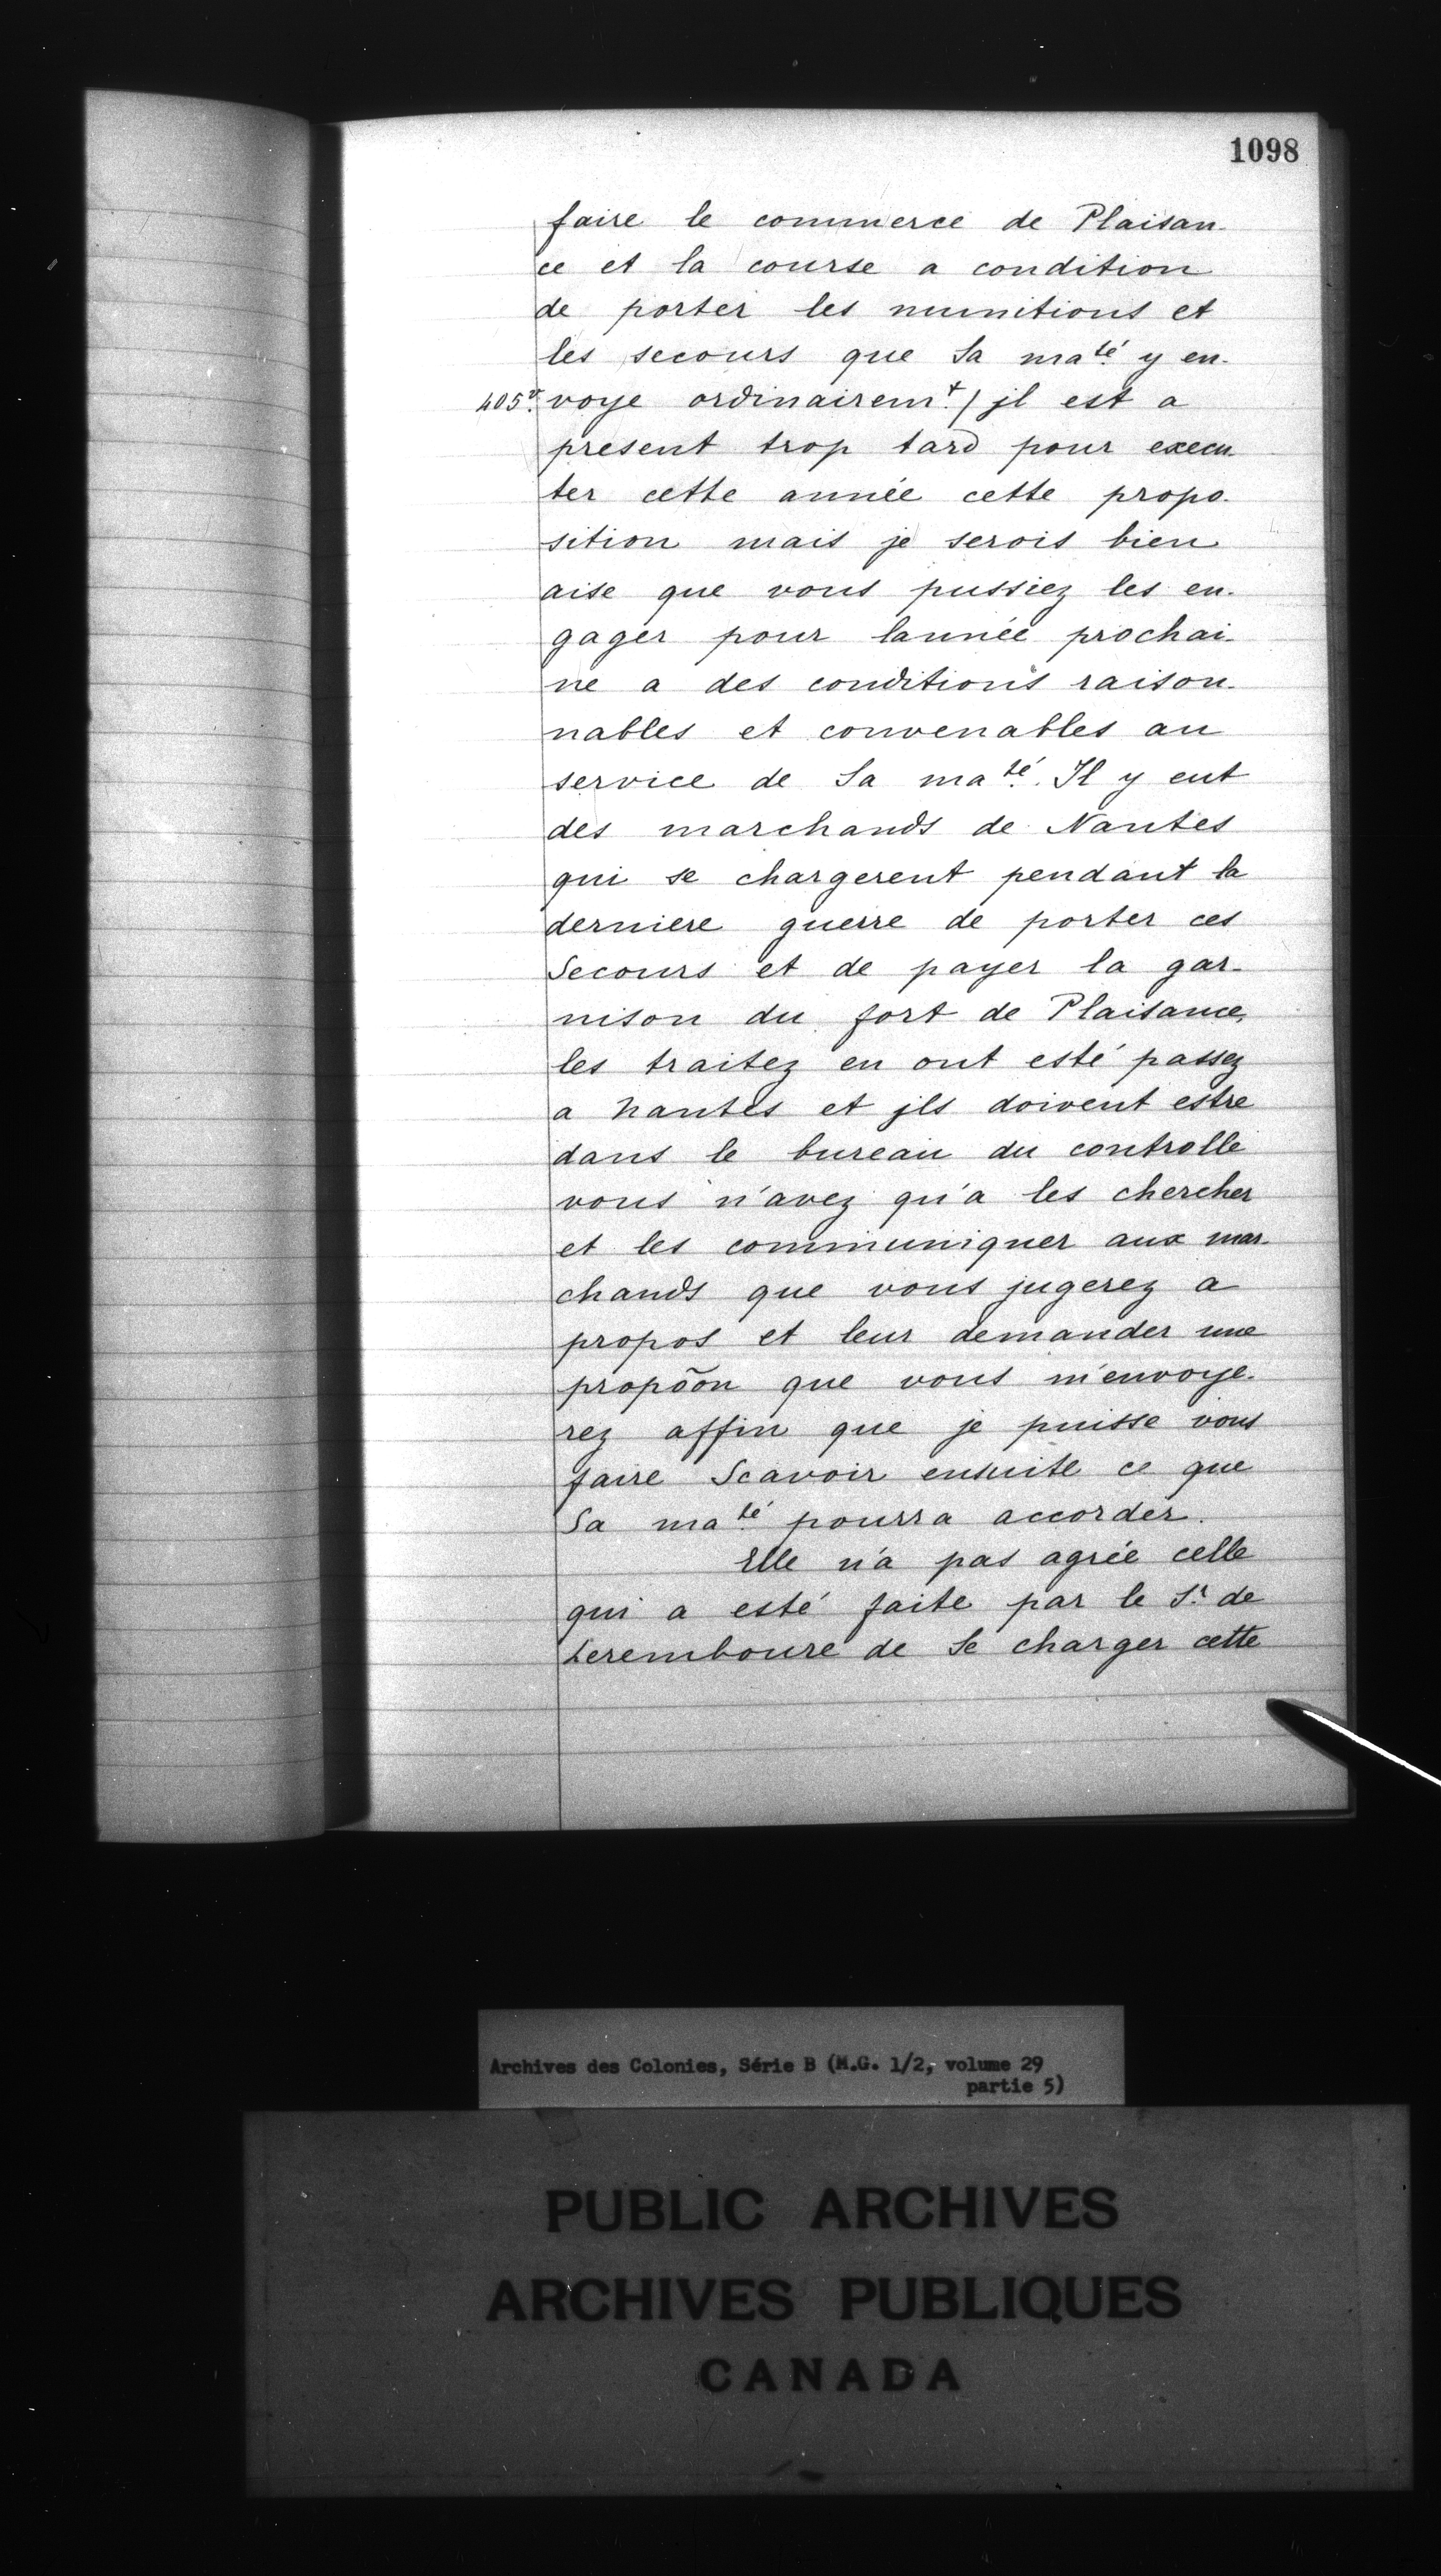 1098
faire le commerce de Plaisan-
ce et la course a condition
de porter les munitions et
les secours que Sa maté y en-
405v. voye ordinairemt./ jl est a
present trop tard pour execu-
ter cette année cette propo-
sition mais je serois bien
aise que vous pussiez les en-
gager pour lannée prochai-
ne a des conditions raison-
nables et convenables au
service de Sa maté. Il y eut
des marchands de Nantes
qui se chargerent pendant la
derniere guerre de porter ces
Secours et de payer la gar-
nison du fort de Plaisance,
les traitez en ont esté passez
a Nantes et jls doivent estre
dans le bureau du controlle
vous n'avez qu'a les chercher
et les communiquer aux mar-
chands que vous jugerez a
propos et leur demander une
propõon que vous m'envoye-
rez affin que je puisse vous
faire Scavoir ensuite ce que
Sa maté pourra accorder.
Elle n'a pas agrée celle
qui a esté faite par le Sr. de
Leremboure de Se charger cette
Archives des Colonies, Série B (M.G. 1/2, volume 29
partie 5)
PUBLIC ARCHIVES
ARCHIVES PUBLIQUES
CANADA